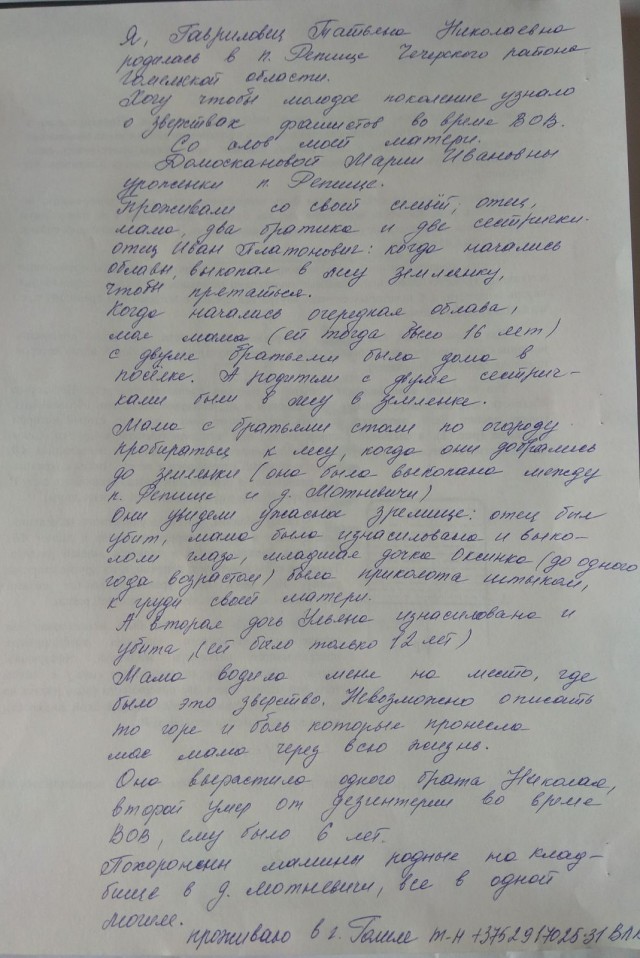 Я, Гаврилович Татьяна Николаевна
родилась в п. Репище Чечерского района
Гомельской области.
Хочу чтобы молодое поколение узнало
о зверствах фашистов во время ВОВ.
Со слов моей матери.
Домоскановой Марии Ивановны
уроженки п. Репище.
Проживали со своей семьёй, отец,
мама, два братика и две сестрички.
отец Иван Платонович: когда начались
облавы, выкопал в лесу землянку,
чтобы прятаться.
Когда началась очередная облава,
моя мама (ей тогда было 16 лет)
с двумя братьями была дома в
посёлке. А родители с двумя сестрич-
ками были в лесу в землянке.
Мама с братьями стали по огороду
пробираться к лесу, когда они добрались
до землянки (она была выкопана между
п. Репище и д. Мотневичи)
Они увидели ужасное зрелище: отец был
убит, мама была изнасилована и выко-
лоли глаза, младшая дочка Оксинка (до одного
года возрастом) была приколота штыком,
к груди своей матери.
А вторая дочь Ульяна изнасилована и
убита, (ей было только 12 лет)
Мама водила меня на место, где
было это зверство. Невозможно описать
то горе и боль которые пронесла
моя мама через всю жизнь.
Она вырастила одного брата Николая,
второй умер от дезинтерии во время
ВОВ, ему было 6 лет.
Похоронены мамины родные на клад-
бище в д. Мотневичи, все в одной
могиле.
проживаю в г. Гомеле т-н +375291702531